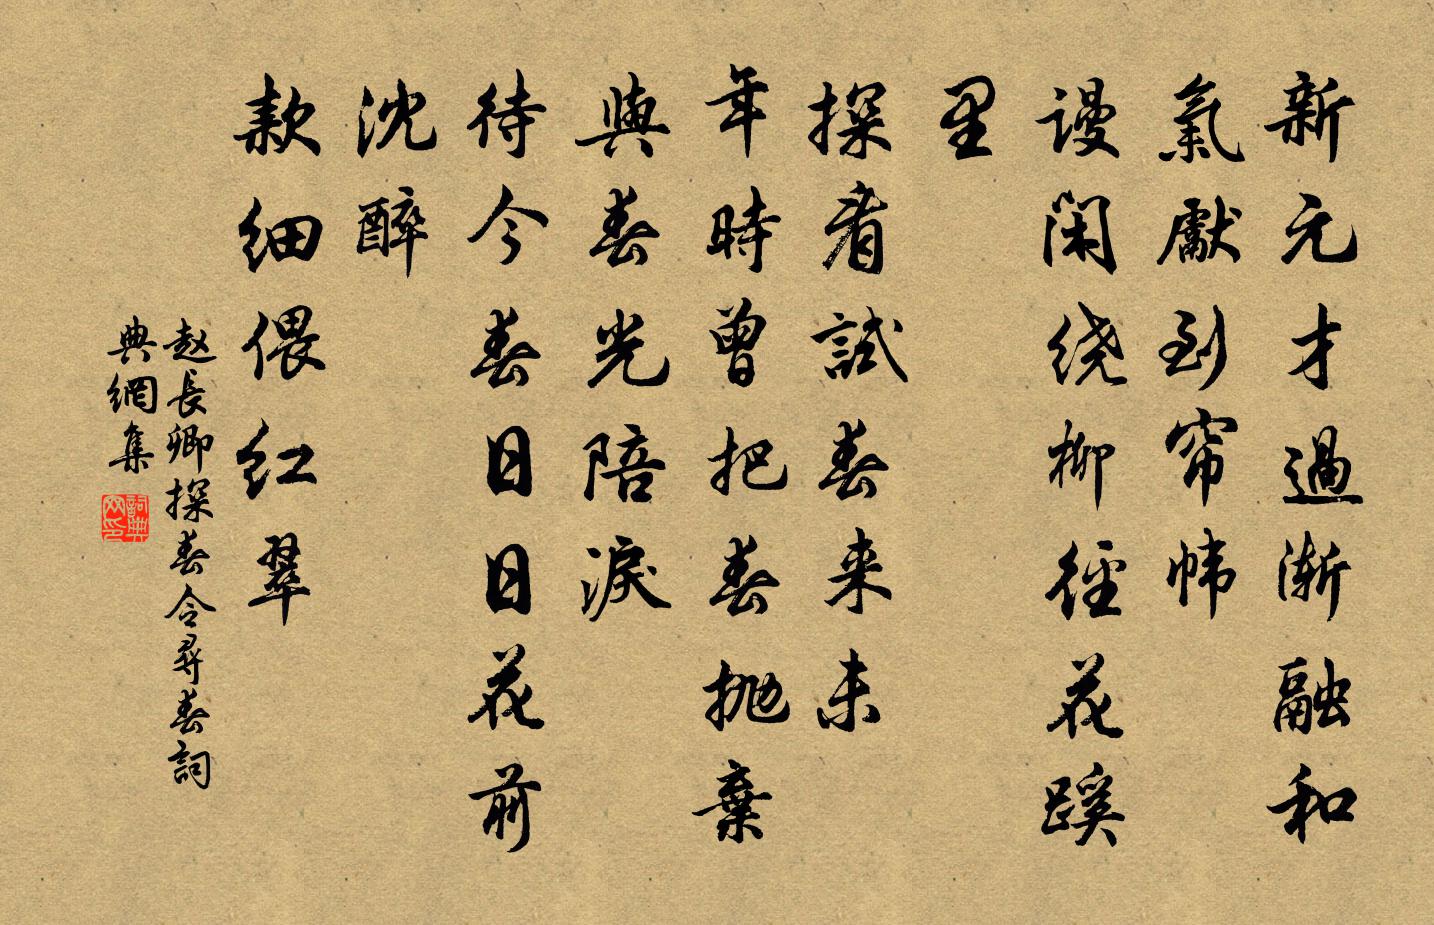 新元才過漸融和
氣獻到帘帏
谩閑绕柳徑花蹊
里
探看試春来未
年時曾把春抛棄
與春光陪淚
待今春日日花前
沈醉
款细偎红翠
赵長卿探春令尋春詞
典網集
詞典网印